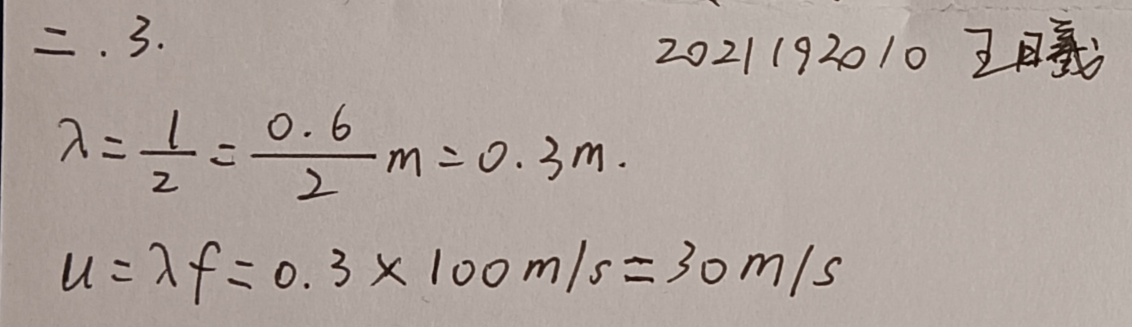 二.3.
2021192010 王曦
λ=1/2=0.6/2 m=0.3m.
u=λf=0.3×100m/s=30m/s